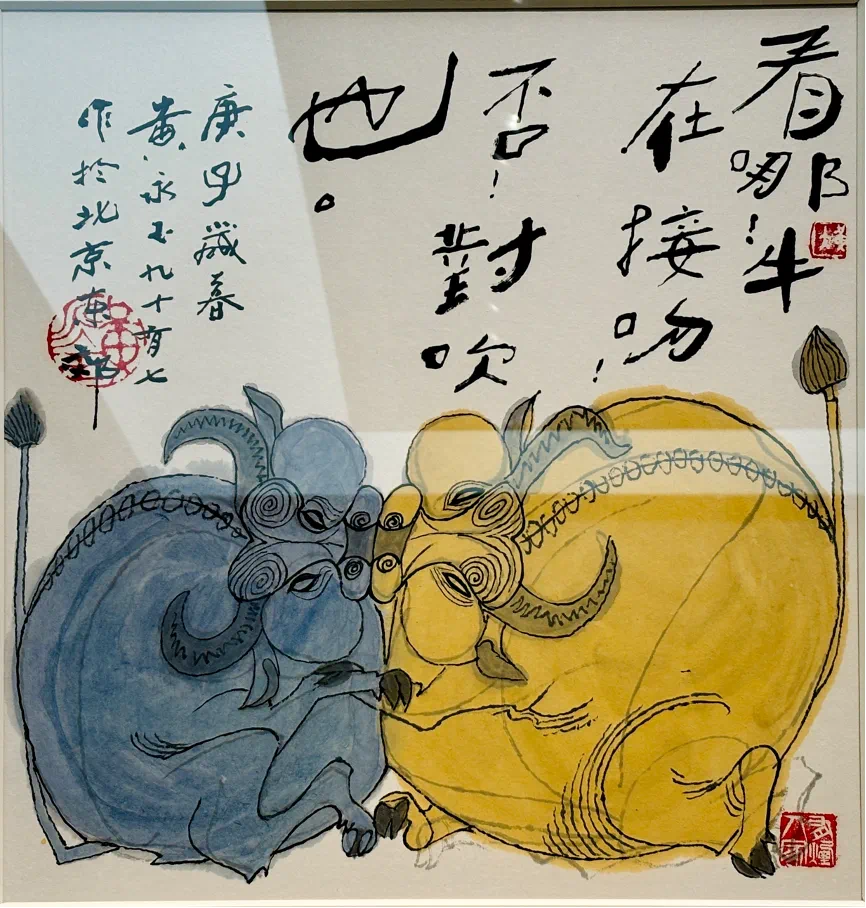 看哪！牛
在接吻！
否！對吹
也。
庚子歲暮
黄永玉九十有七
作於北京東郊